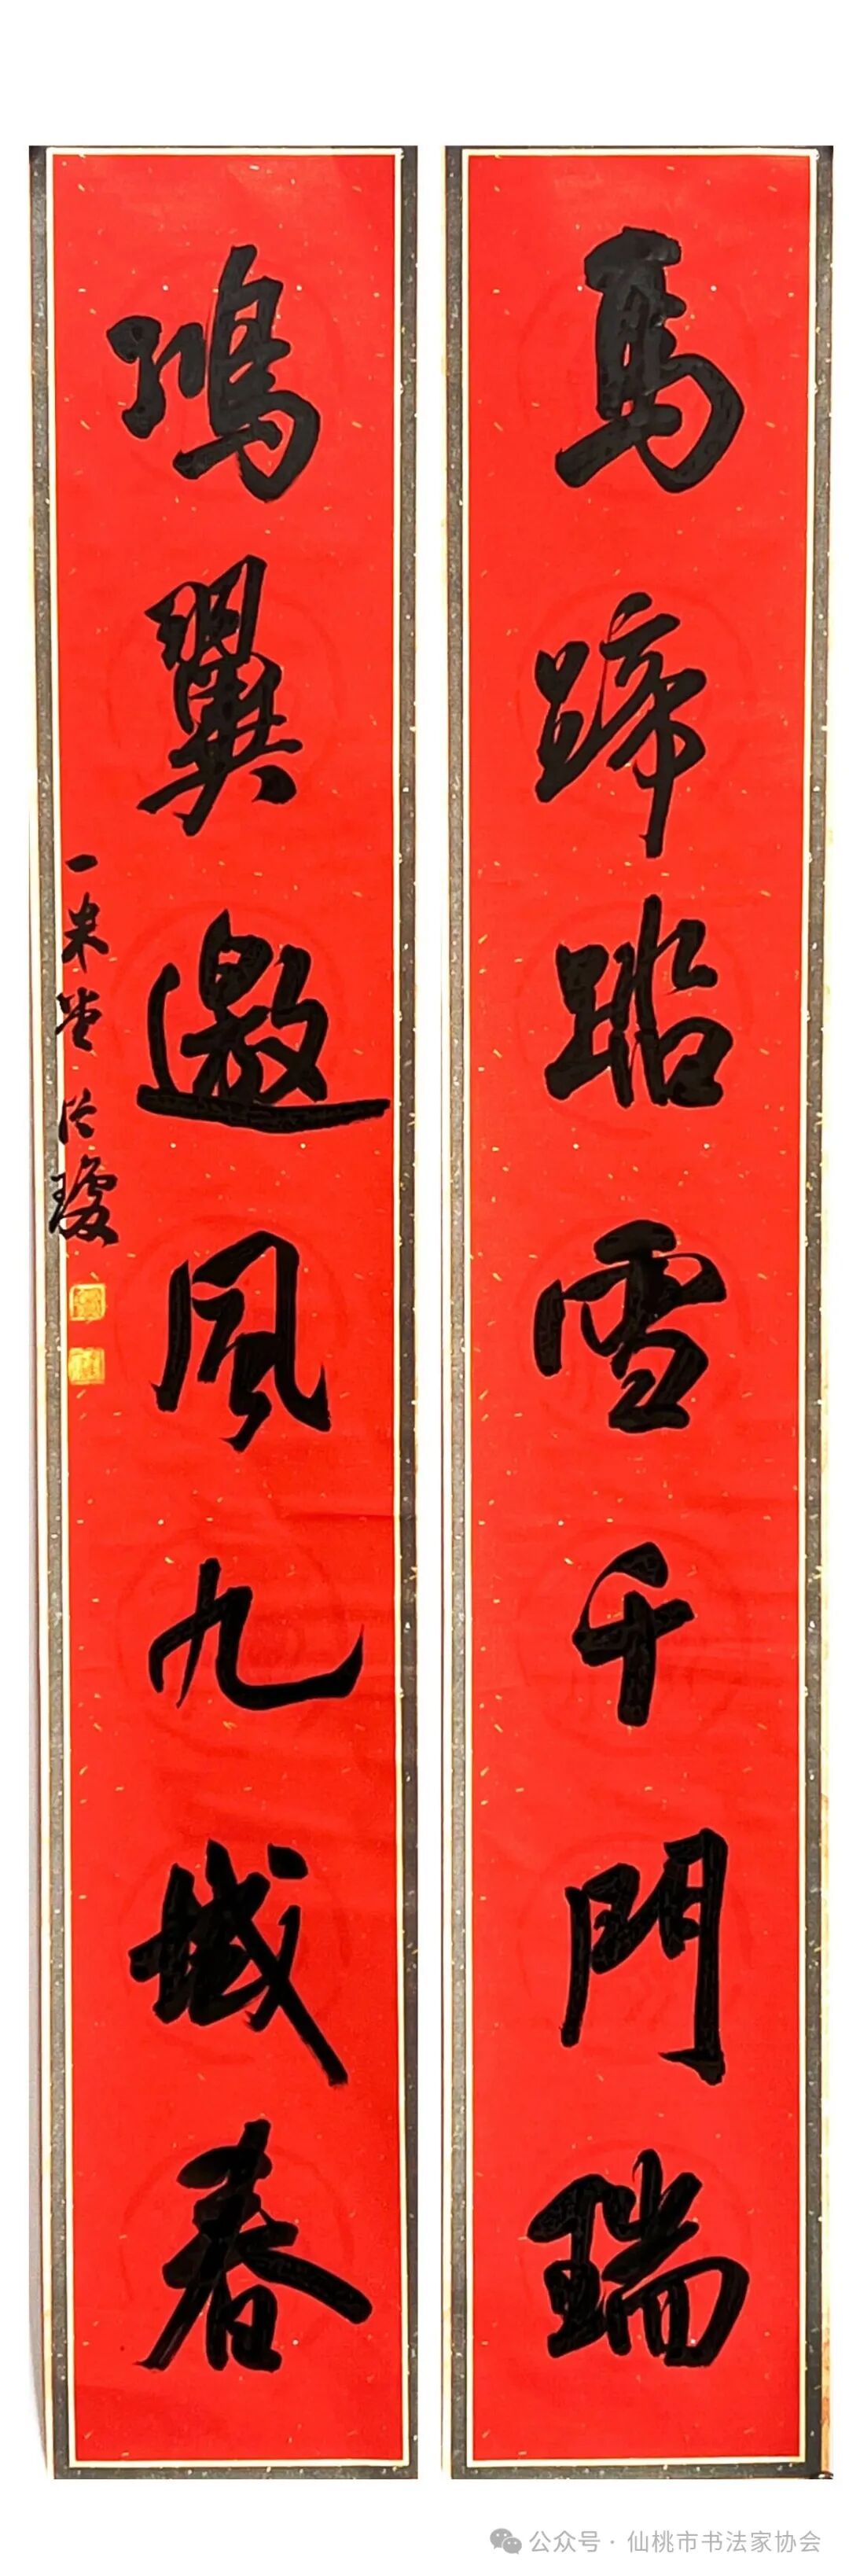 馬蹄踏雪千門瑞
鴻翼邀風九域春
一米堂 
公众号 · 仙桃市书法家协会